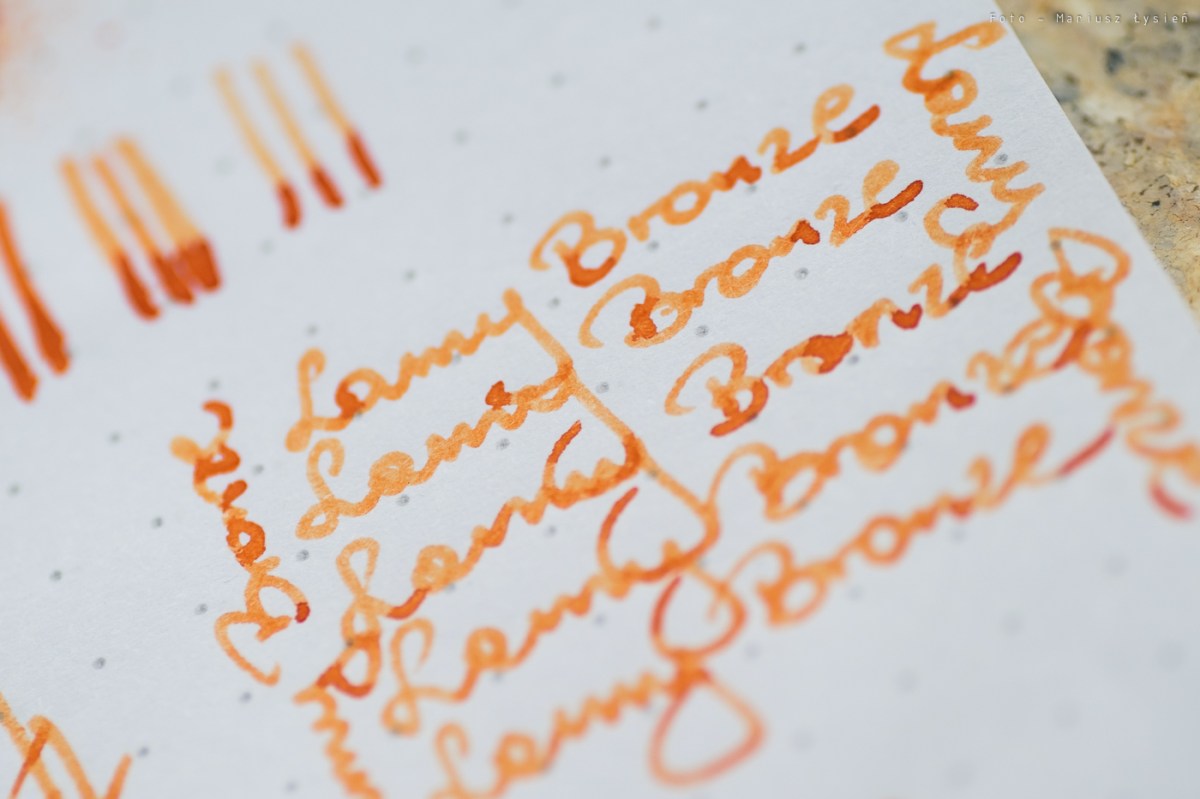 Foto - Mariusz Łysień
Lamy Bronze
Lamy Bronze
Lamy Bronze
Lamy Bronze
Lamy Bronze
Lamy
Bronze
Lamy